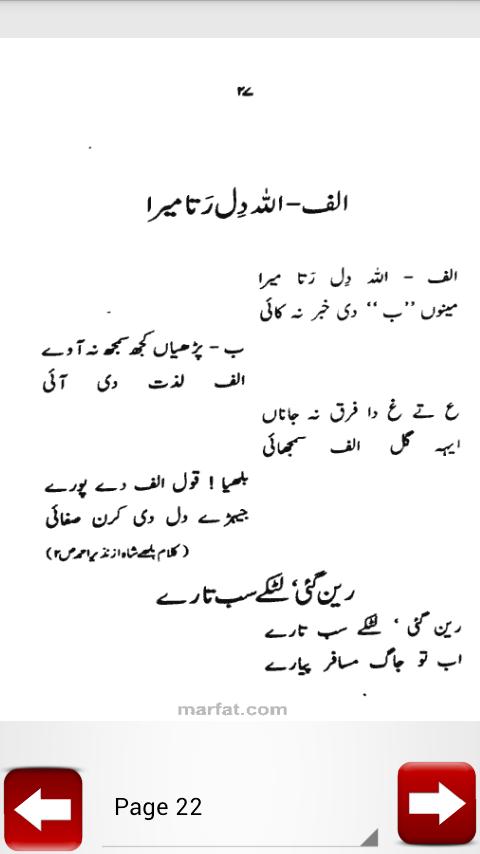 ۲۷
الف - اللہ دِل رَتا میرا
الف - اللہ دِل رَتا میرا
مینوں ’’ب‘‘ دی خبر نہ کائی
ب - پڑھیاں کجھ سمجھ نہ آوے
الف لذت دی آئی
ع تے غ دا فرق نہ جاناں
ایہہ گل الف سمجھائی
بلھیا ! قول الف دے پورے
جیہڑے دل دی کرن صفائی
(کلام بلھے شاہ از نذیر احمد ص ۲)
رین گئی، لٹکے سب تارے
رین گئی ، لٹکے سب تارے
اب تو جاگ مسافر پیارے
marfat.com
Page 22